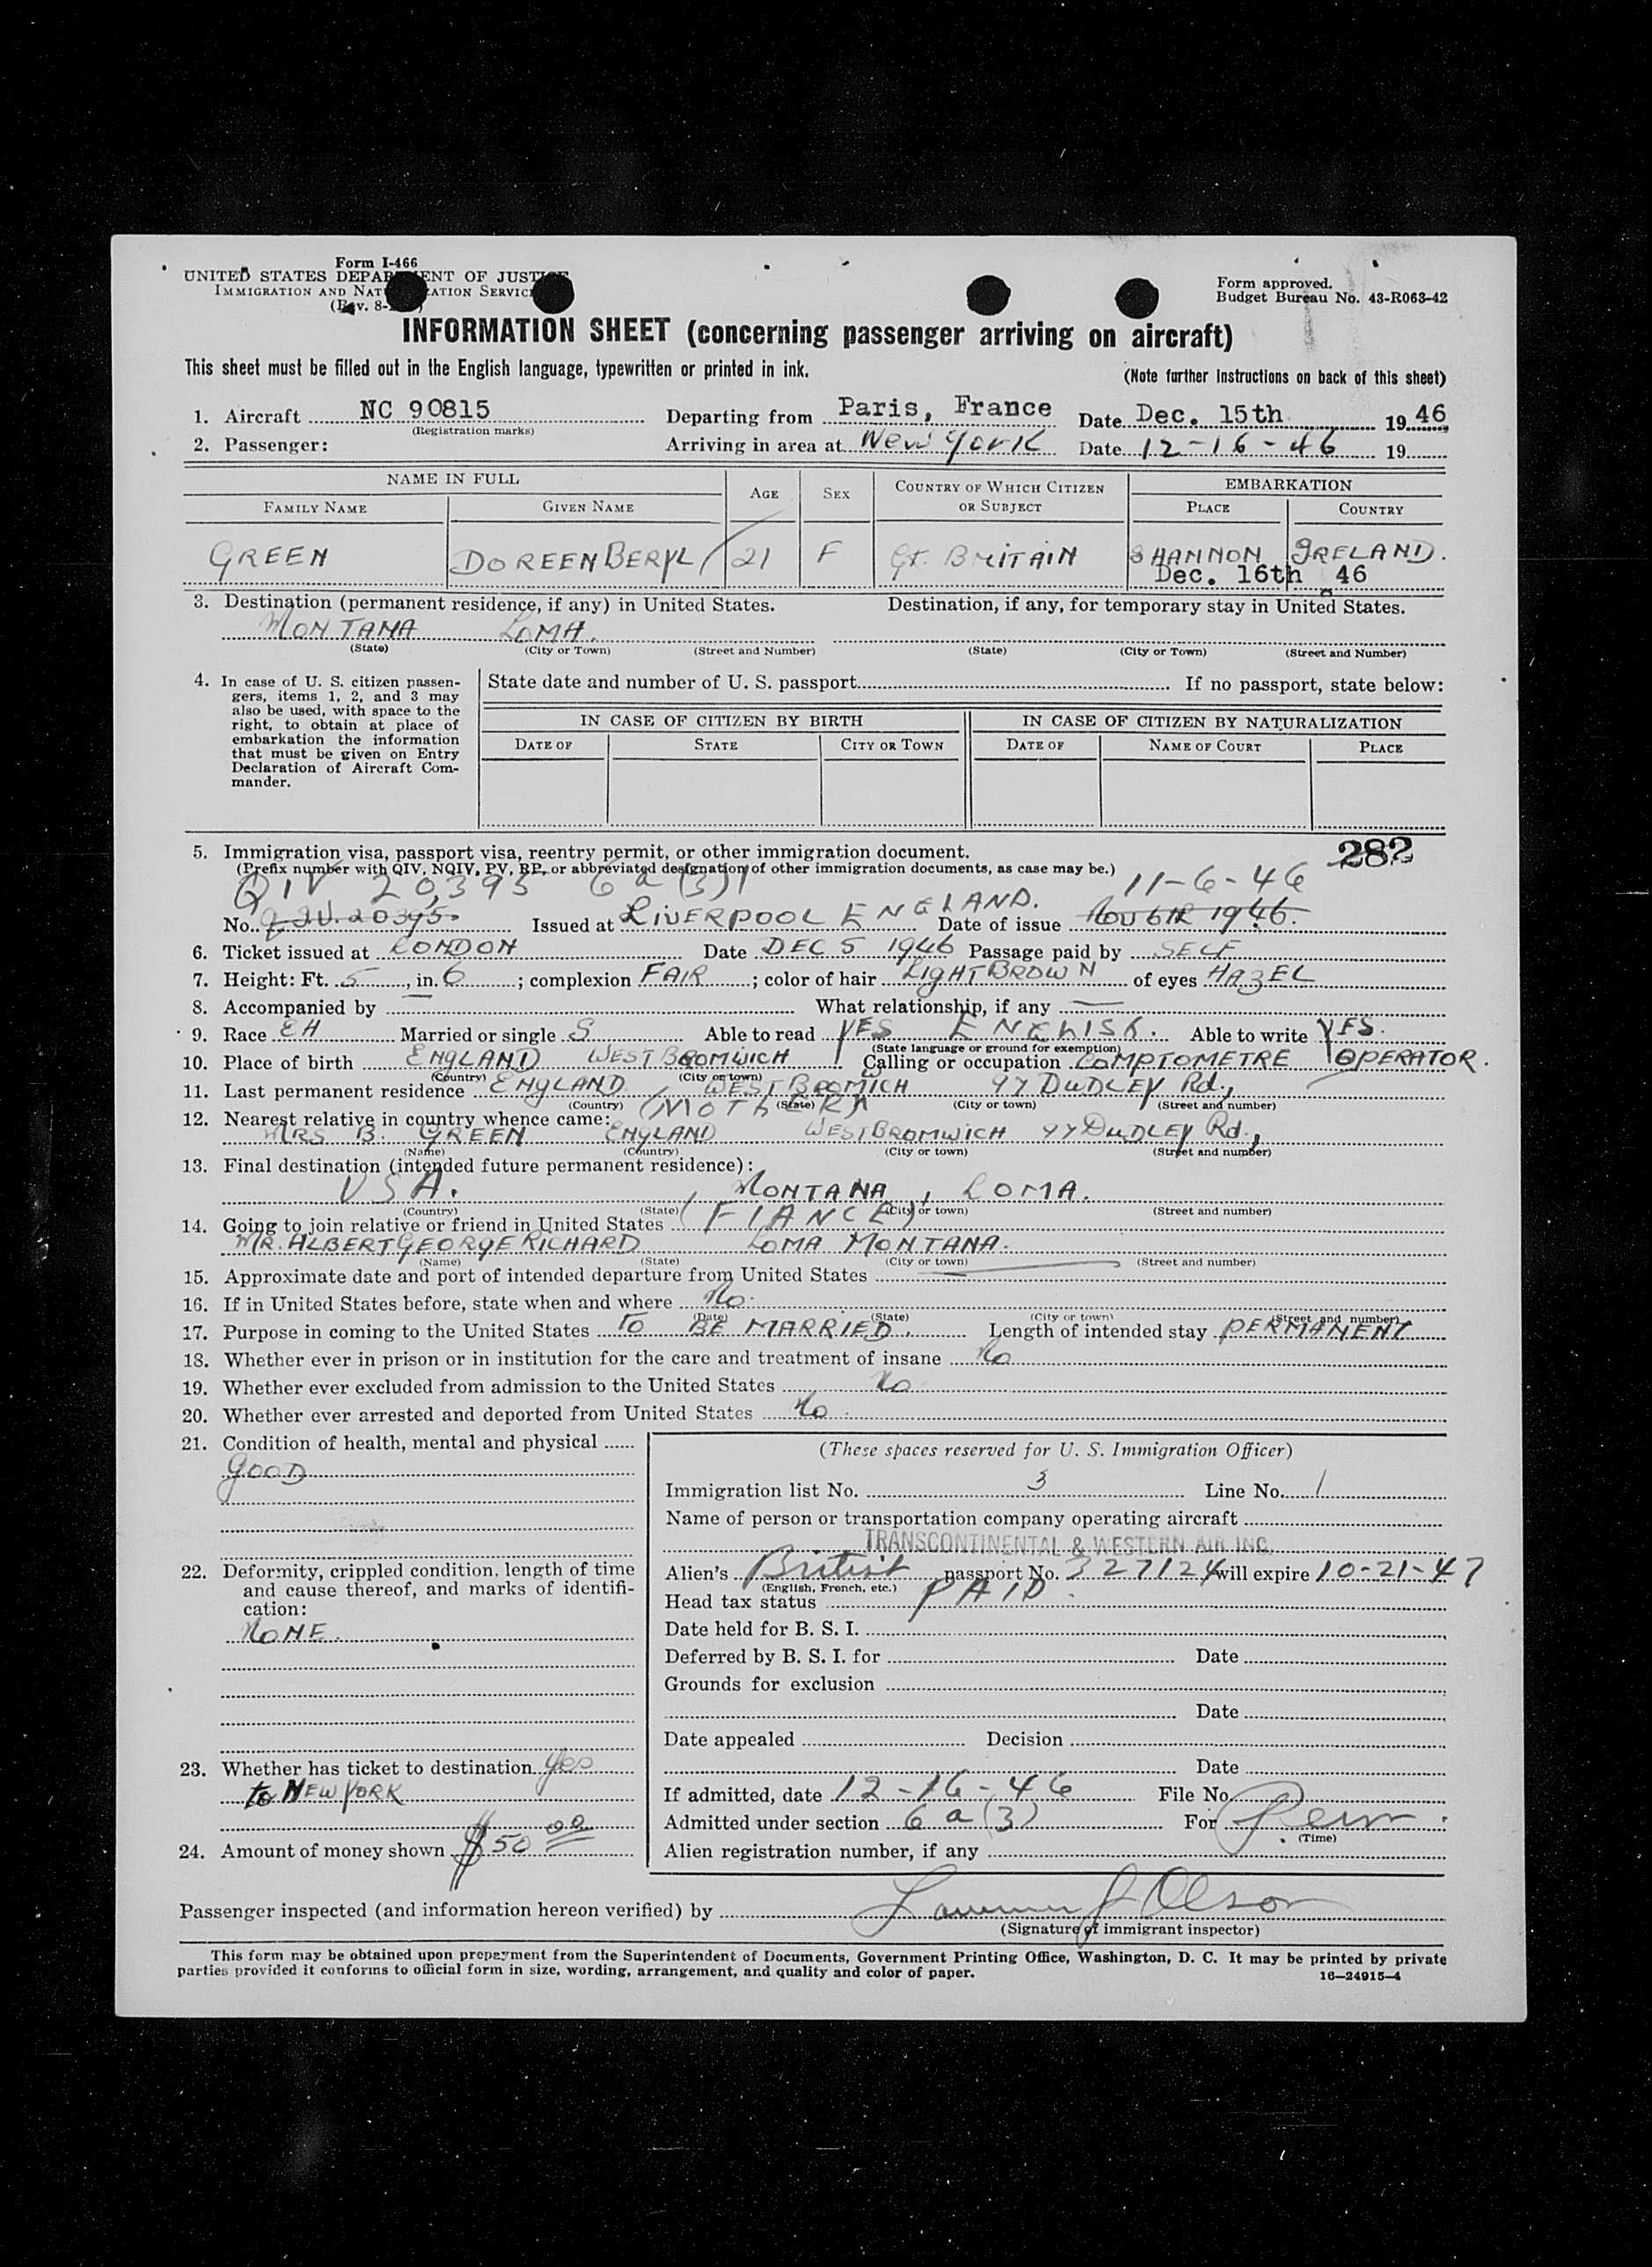 Form I-466
UNITED STATES DEPARTMENT OF JUSTICE
IMMIGRATION AND NATURALIZATION SERVICE
(Rev. 8-
Form approved.
Budget Bureau No. 43-R063-42
INFORMATION SHEET (concerning passenger arriving on aircraft)
This sheet must be filled out in the English language, typewritten or printed in ink.
(Note further instructions on back of this sheet)
1. Aircraft NC 90815 Departing from Paris, France Date Dec. 15th 1946
(Registration marks)
2. Passenger: Arriving in area at New York Date 12-16-46 19
NAME IN FULL AGE SEX COUNTRY OF WHICH CITIZEN OR SUBJECT EMBARKATION
FAMILY NAME GIVEN NAME PLACE COUNTRY
GREEN DOREEN BERYL 21 F GT. BRITAIN SHANNON IRELAND.
Dec. 16th 46
3. Destination (permanent residence, if any) in United States. Destination, if any, for temporary stay in United States.
MONTANA LOMA.
(State) (City or Town) (Street and Number) (State) (City or Town) (Street and Number)
4. In case of U. S. citizen passengers, items 1, 2, and 3 may also be used, with space to the right, to obtain at place of embarkation the information that must be given on Entry Declaration of Aircraft Commander.
State date and number of U. S. passport If no passport, state below:
IN CASE OF CITIZEN BY BIRTH IN CASE OF CITIZEN BY NATURALIZATION
DATE OF STATE CITY OR TOWN DATE OF NAME OF COURT PLACE
282
5. Immigration visa, passport visa, reentry permit, or other immigration document.
(Prefix number with QIV, NQIV, PV, RP, or abbreviated designation of other immigration documents, as case may be.)
QIV 20,395 6a(3) 11-6-46
No. Q IV. 20395. Issued at LIVERPOOL ENGLAND. Date of issue NOV 6TH 1946.
6. Ticket issued at LONDON Date DEC 5 1946 Passage paid by SELF
7. Height: Ft. 5, in. 6; complexion FAIR; color of hair LIGHT BROWN of eyes HAZEL
8. Accompanied by What relationship, if any —
9. Race EH Married or single S Able to read YES ENGLISH. Able to write YES.
(State language or ground for exemption)
10. Place of birth ENGLAND WEST BROMWICH Calling or occupation COMPTOMETRE OPERATOR.
(Country) (City or town)
11. Last permanent residence ENGLAND WEST BROMICH 97 DUDLEY Rd.,
(Country) (State) (City or town) (Street and number)
12. Nearest relative in country whence came: (MOTHER)
MRS B. GREEN ENGLAND WEST BROMWICH 97 DUDLEY Rd.,
(Name) (Country) (City or town) (Street and number)
13. Final destination (intended future permanent residence):
USA. , MONTANA, LOMA.
(Country) (State) (City or town) (Street and number)
14. Going to join relative or friend in United States (FIANCE)
MR. ALBERT GEORGE RICHARD LOMA MONTANA.
(Name) (State) (City or town) (Street and number)
15. Approximate date and port of intended departure from United States —
16. If in United States before, state when and where No.
(Date) (State) (City or town) (Street and number)
17. Purpose in coming to the United States TO BE MARRIED. Length of intended stay PERMANENT
18. Whether ever in prison or in institution for the care and treatment of insane No
19. Whether ever excluded from admission to the United States No
20. Whether ever arrested and deported from United States No.
21. Condition of health, mental and physical
GOOD
22. Deformity, crippled condition, length of time and cause thereof, and marks of identification:
NONE.
23. Whether has ticket to destination yes
to NEW YORK
24. Amount of money shown $50 00
(These spaces reserved for U. S. Immigration Officer)
Immigration list No. 3 Line No. 1
Name of person or transportation company operating aircraft
TRANSCONTINENTAL & WESTERN AIR INC.
Alien's British passport No. 327124 will expire 10-21-47
(English, French, etc.)
Head tax status PAID.
Date held for B. S. I.
Deferred by B. S. I. for Date
Grounds for exclusion
Date
Date appealed Decision
Date
If admitted, date 12-16-46 File No.
Admitted under section 6a(3) For Perm.
(Time)
Alien registration number, if any
Passenger inspected (and information hereon verified) by J Olson
(Signature of immigrant inspector)
This form may be obtained upon prepayment from the Superintendent of Documents, Government Printing Office, Washington, D. C. It may be printed by private
parties provided it conforms to official form in size, wording, arrangement, and quality and color of paper.
16—24915-4